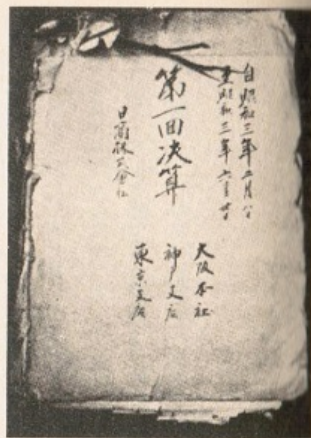 自昭和三年二月八日
至昭和三年六月卅日
第一回決算
日商株式會社
大阪本社
神戸支店
東京支店